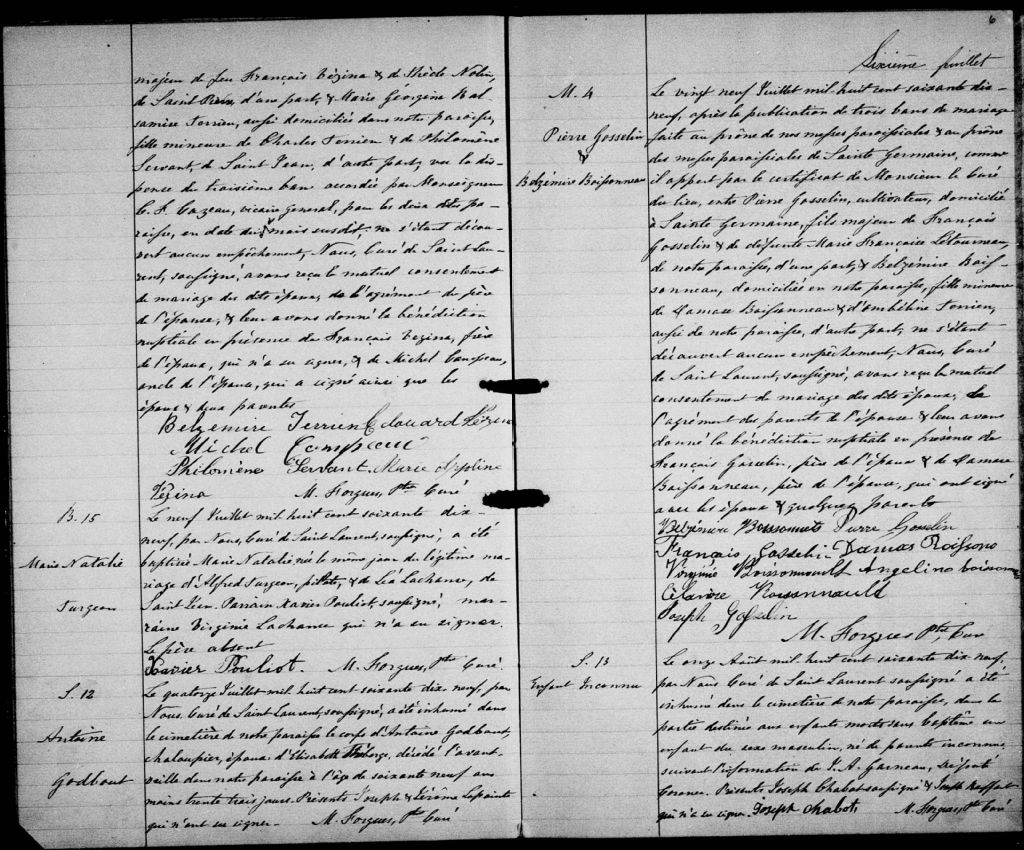 majeur de feu François Vézina & de Thècle Nolin,
de Saint Pierre, d'une part, & Marie Géorgina Bal-
samire Terrien, aussi domiciliée dans notre paroisse,
fille mineure de Charles Terrien & de Philomène
Servant, de Saint Jean, d'autre part, vu la dis-
pense du troisième ban accordée par Monseigneur
C. F. Cazeau, vicaire général, pour les deux dites pa-
roisses, en date du mois susdit, ne s'étant décou-
vert aucun empêchement, Nous, Curé de Saint Lau-
rent, soussigné, avons reçu le mutuel consentement
de mariage des dits époux, de l'agrément du père
de l'épouse, & leur avons donné la bénédiction
nuptiale en présence de François Vézina, frère
de l'époux, qui n'a su signer, & de Michel
oncle de l'époux, qui a signé ainsi que les
époux & deux parentes
Belzemire Terrien Edouard Vézina
Michel
Philomène Servant Marie Appoline
Vézina M. Forgues, Ptre Curé
B. 15
Marie Natalie
Turgeon
Le neuf Juillet mil huit cent soixante dix-
neuf, par Nous, Curé de Saint Laurent, soussigné, a été
baptisée Marie Natalie née le même jour du légitime ma-
riage d'Alfred Turgeon, pilote, & de Léa Lachance, de
Saint Jean. Parrain Xavier Pouliot, soussigné, mar-
raine Virginie Lachance qui n'a su signer.
Le père absent
Xavier Pouliot. M. Forgues, Ptre Curé.
S. 12
Antoine
Godbout
Le quatorze Juillet mil huit cent soixante dix neuf, par
Nous, Curé de Saint Laurent, soussigné, a été inhumé dans
le cimetière de notre paroisse le corps d'Antoine Godbout,
chaloupier, époux d'Elizabeth Théberge, décédé l'avant-
veille dans notre paroisse à l'âge de soixante neuf ans
moins trente trois jours. Présents Joseph & Jérôme Lapointe
qui n'ont su signer. M. Forgues, Ptre Curé
6
Sixième feuillet
M. 4
Pierre Gosselin
&
Belzémire Boissonneau
Le vingt neuf Juillet mil huit cent soixante dix-
neuf, après la publication de trois bans de mariage
faite au prône de nos messes paroissiales & au prône
des messes paroissiales de Sainte Germaine, comme
il appert par le certificat de Monsieur le Curé
du lieu, entre Pierre Gosselin, cultivateur, domicilié
à Sainte Germaine, fils majeur de François
Gosselin & de défunte Marie Françoise Létourneau,
de notre paroisse, d'une part, & Belzémire Bois-
sonneau, domiciliée en notre paroisse, fille mineure
de Damase Boissonneau & d'Ombéline Terrien,
aussi de notre paroisse, d'autre part, ne s'étant
découvert aucun empêchement, Nous, Curé
de Saint Laurent, soussigné, avons reçu le mutuel
consentement de mariage des dits époux, de
l'agrément des parents de l'épouse & leur avons
donné la bénédiction nuptiale en présence de
François Gosselin, père de l'époux & de Damase
Boissonneau, père de l'épouse, qui ont signé
avec les époux & quelques parents
Belzémire Pierre Gosselin
François Gosselin Damas
Virginie Boissonnault Angelina
Boissonnault
Joseph Gosselin
M. Forgues Ptre Curé
S. 13
Enfant Inconnu
Le onze Août mil huit cent soixante dix neuf,
par Nous Curé de Saint Laurent soussigné a été
inhumé dans le cimetière de notre paroisse, dans la
partie destinée aux enfants morts sans baptême un
enfant du sexe masculin, né de parents inconnus,
suivant l'information de J. A. Garneau, Député
Coroner. Présents Joseph Chabot soussigné & Joseph
qui n'a su signer. Joseph Chabot M. Forgues, Ptre Curé